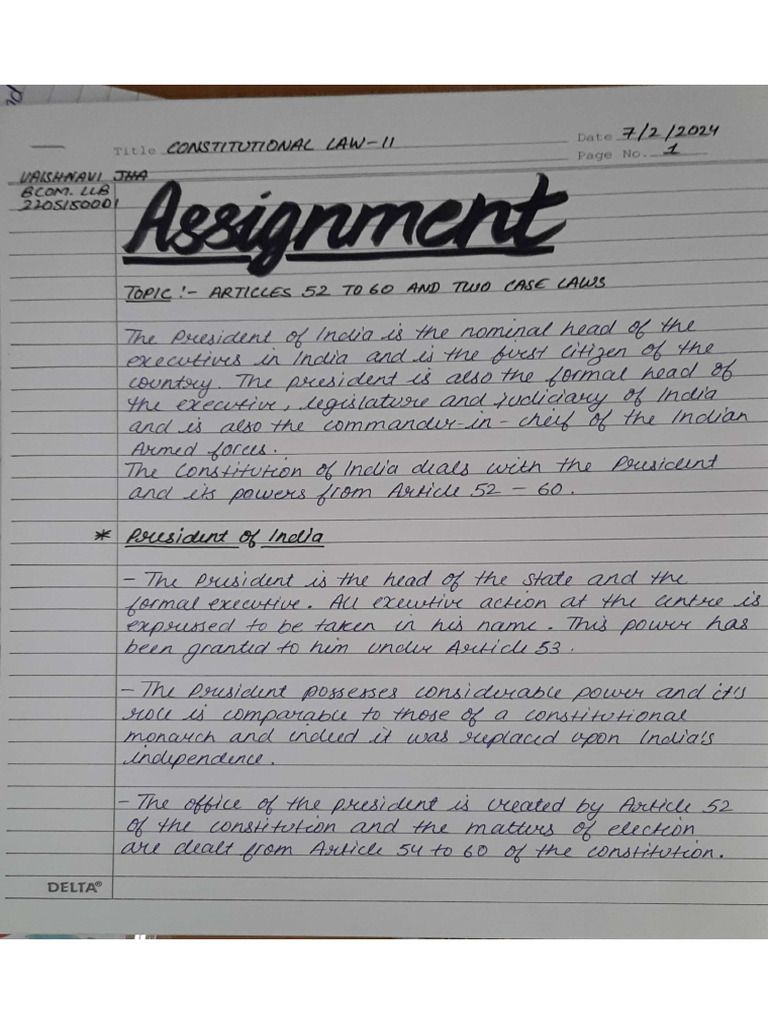 Title CONSTITUTIONAL LAW-II
Date 7/2/2024
Page No. 1
VAISHNAVI JHA
BCOM. LLB
2205150001
Assignment
TOPIC :- ARTICLES 52 TO 60 AND TWO CASE LAWS
The President of India is the nominal head of the
executives in India and is the first citizen of the
country. The president is also the formal head of
the executive, legislature and judiciary of India
and is also the commander-in-cheif of the Indian
Armed forces.
The Constitution of India deals with the President
and its powers from Article 52 - 60.
* President of India
- The President is the head of the state and the
formal executive. All executive action at the centre is
expressed to be taken in his name. This power has
been granted to him under Article 53.
- The President possesses considerable power and it's
role is comparable to those of a constitutional
monarch and indeed it was replaced upon India's
independence.
- The office of the president is created by Article 52
of the constitution and the matters of election
are dealt from Article 54 to 60 of the constitution.
DELTA®